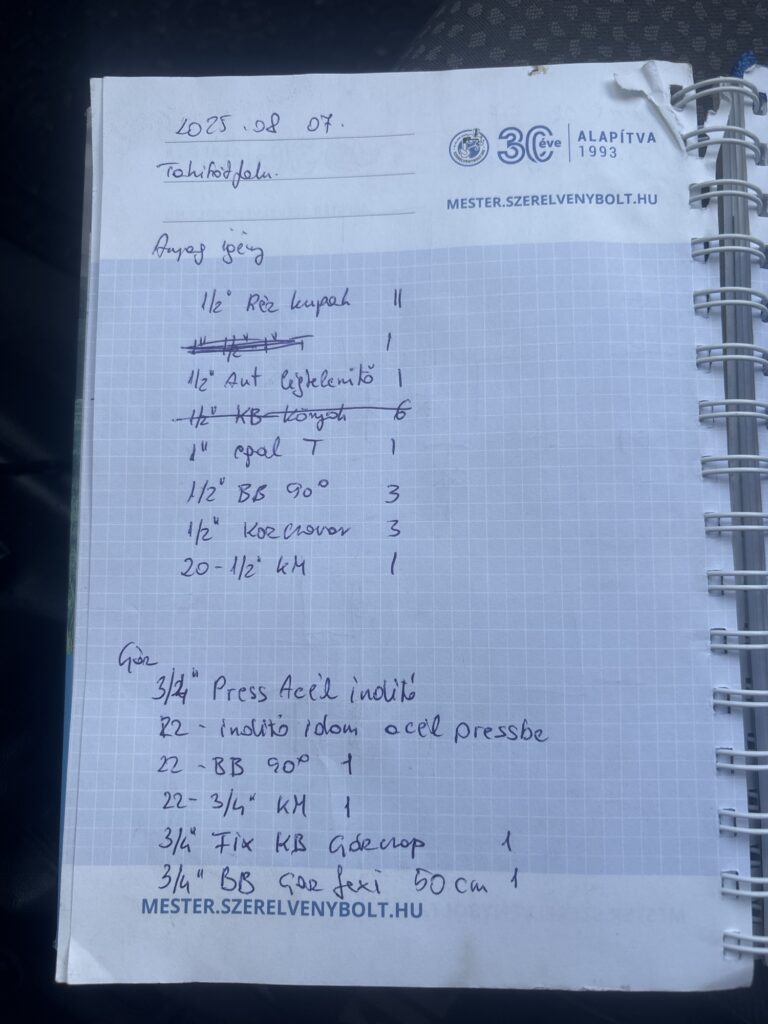 2025.08 07.
30 éve ALAPÍTVA 1993
Tahitótfalu.
MESTER.SZERELVENYBOLT.HU
Anyag igény
1/2" Réz kupak 11
1" 1/2" 1" 1
1/2" Aut légtelenítő 1
1/2" KB könyök 6
1" egal T 1
1/2" BB 90° 3
1/2" Közcsavar 3
20-1/2" KM 1
Gáz
3/4" Press Acél indító
22 - indító idom acél pressbe
22 - BB 90° 1
22- 3/4" KM 1
3/4" Fix KB Gázcsap 1
3/4" BB Gáz flexi 50 cm 1
MESTER.SZERELVENYBOLT.HU